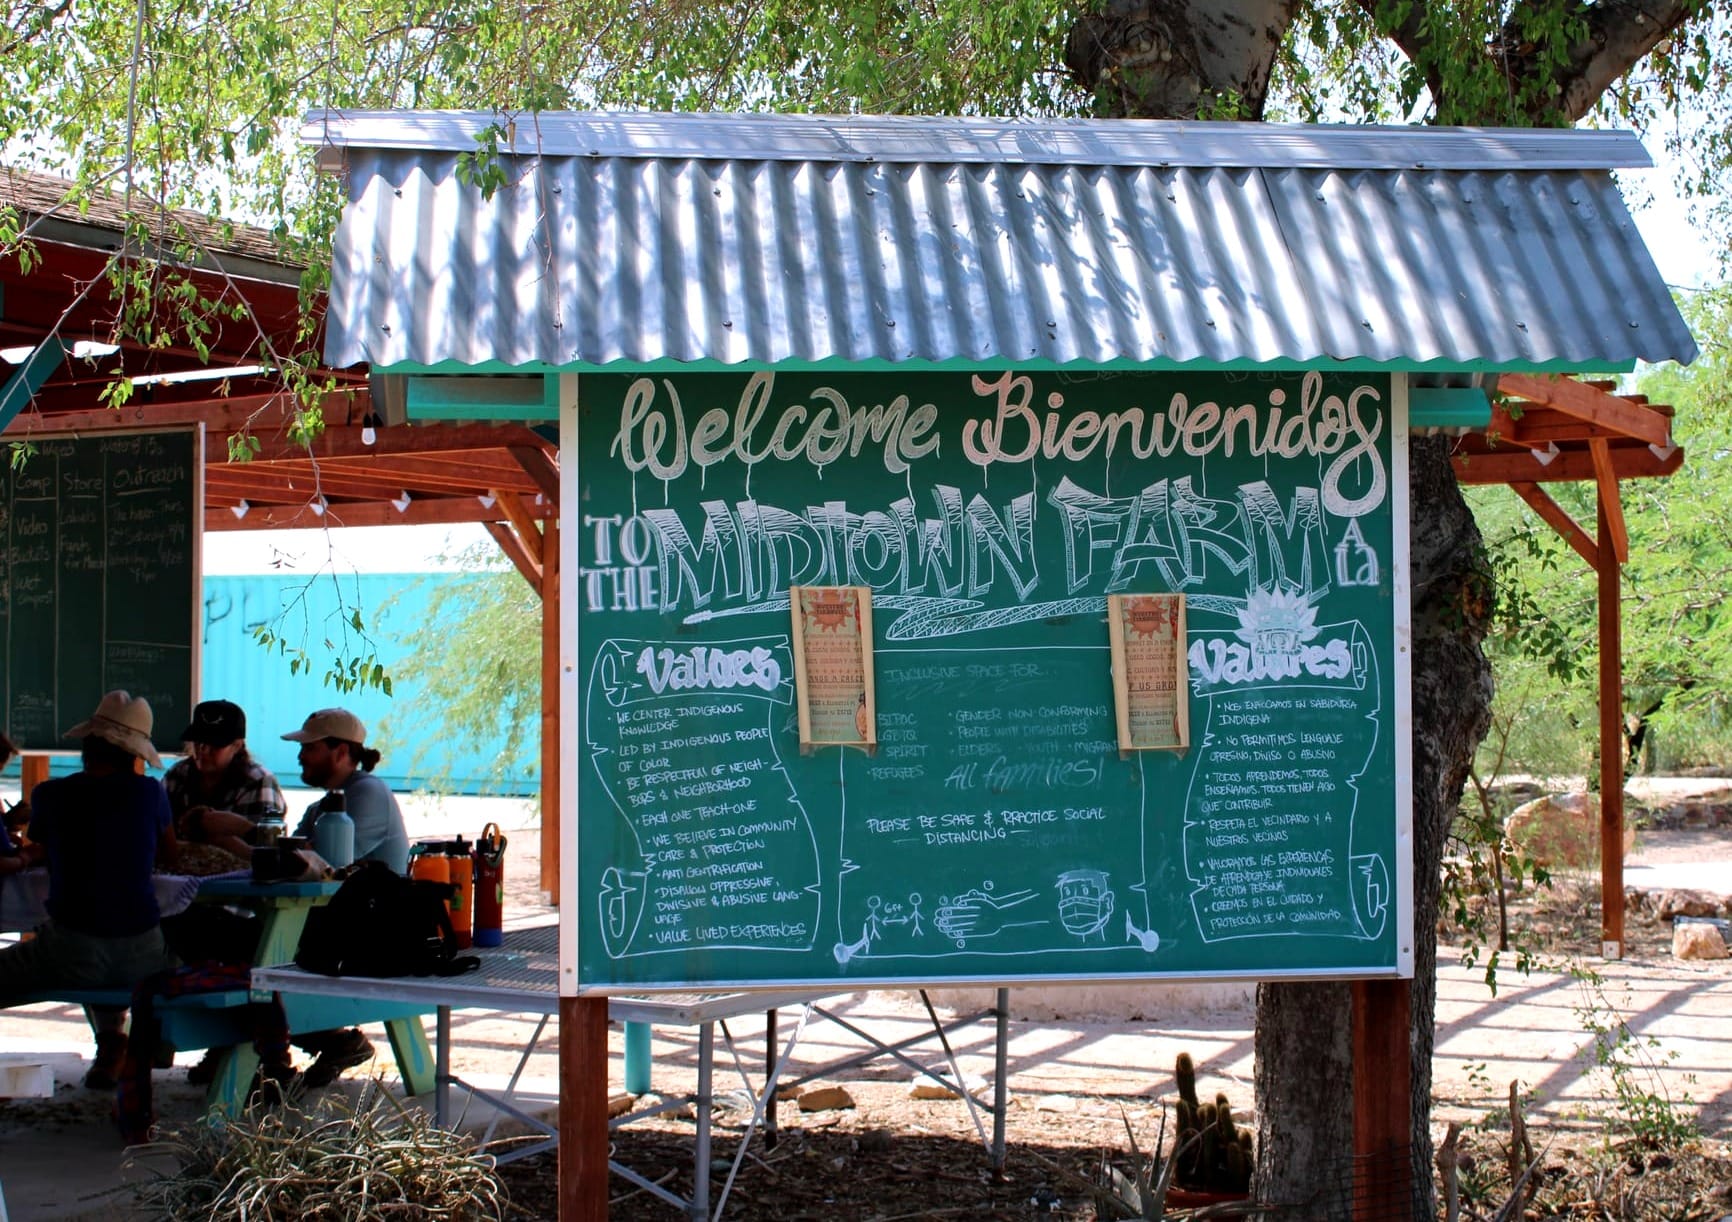 Welcome Bienvenidos
TO THE MIDTOWN FARM A La
Values
• WE CENTER INDIGENOUS
KNOWLEDGE
• LED BY INDIGENOUS PEOPLE
OF COLOR
• BE RESPECTFULL OF NEIGH-
BORS & NEIGHBORHOOD
• EACH ONE TEACH ONE
• WE BELIEVE IN COMMUNITY
CARE & PROTECTION
• ANTI GENTRIFICATION
• DISALLOW OPPRESSIVE,
DIVISIVE & ABUSIVE LANG-
UAGE
• VALUE LIVED EXPERIENCES
INCLUSIVE SPACE FOR...
BIPOC
LGBTQ
SPIRIT
• REFUGEES
• GENDER NON-CONFORMING
• PEOPLE WITH DISABILITIES
• ELDERS • YOUTH • MIGRAN
All families!
PLEASE BE SAFE & PRACTICE SOCIAL
DISTANCING
6ft
Valores
• NOS ENFOCAMOS EN SABIDURIA
INDIGENA
• NO PERMITIMOS LENGUAJE
OPRESIVO, DIVISO O ABUSIVO
• TODOS APRENDEMOS, TODOS
ENSEÑAMOS, TODOS TIENEN ALGO
QUE CONTRIBUIR
• RESPETA EL VECINDARIO Y A
NUESTROS VECINOS
• VALORAMOS LAS EXPERIENCIAS
DE APRENDIZAJE INDIVIDUALES
DE CADA PERSONA
• CREEMOS EN EL CUIDADO Y
PROTECCIÓN DE LA COMUNIDAD
Comp
Video
Buckets
Wet
compost
Store
Labels
Outreach